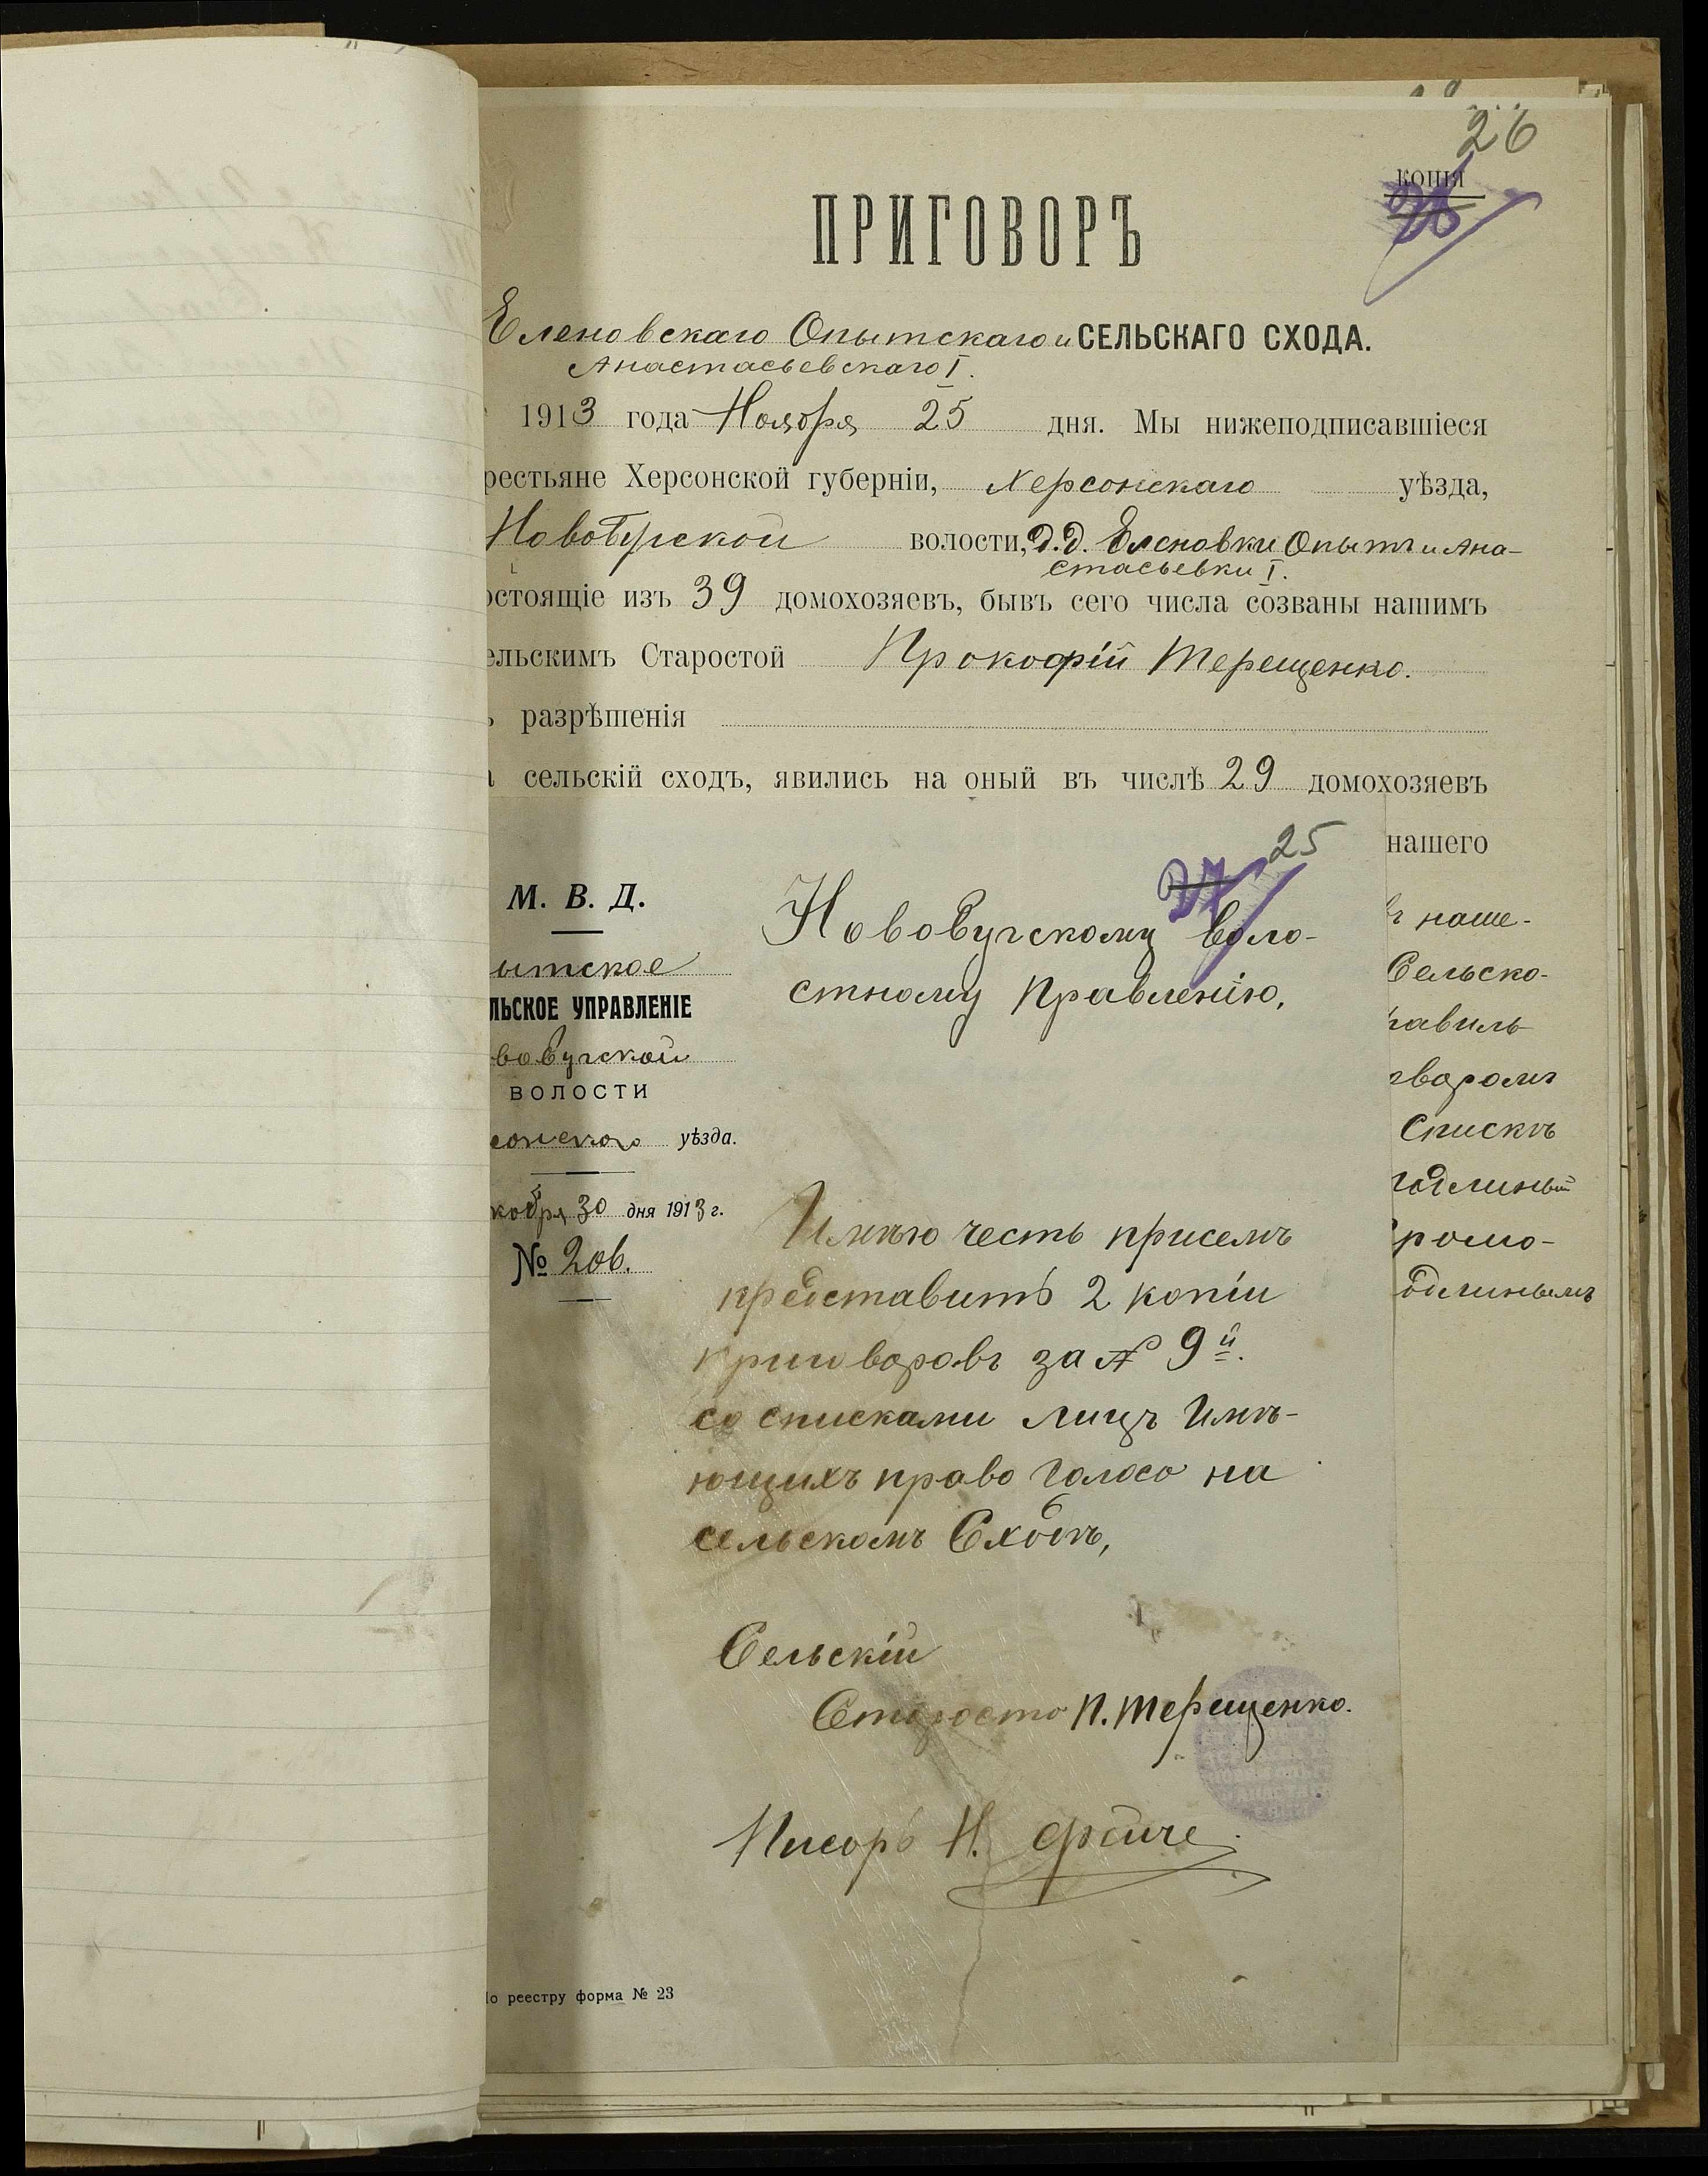 26
копія
28
ПРИГОВОРЪ
Еленовскаго Опытскаго и СЕЛЬСКАГО СХОДА.
Анастасьевскаго I.
1913 года Ноября 25 дня. Мы нижеподписавшіеся
рестьяне Херсонской губерніи, Херсонскаго уѣзда,
Новобугской волости, д.д. Еленовки Опытъ и Ана-
стасьевки I.
остоящіе изъ 39 домохозяевъ, бывъ сего числа созваны нашимъ
ельскимъ Старостой Прокофій Терещенко.
ъ разрѣшенія
а сельскій сходъ, явились на оный въ числѣ 29 домохозяевъ
нашего
ъ наше-
Сельско-
равиль-
говоромъ
Списокъ
одлинный
громо-
одлиннымъ
25
27
М. В. Д.
ытское
ЛЬСКОЕ УПРАВЛЕНІЕ
вобугской
ВОЛОСТИ
сонскаго уѣзда.
30 дня 1913 г.
№ 206.
Новобугскому Воло-
стному Правленію,
Имѣю честь присемъ
представить 2 копіи
приговоровъ за № 9й.
со списками лицъ Имѣ-
ющихъ право голоса на
сельскомъ Сходѣ,
Сельскій
Староста П. Терещенко.
Писарь Н.
По реестру форма № 23